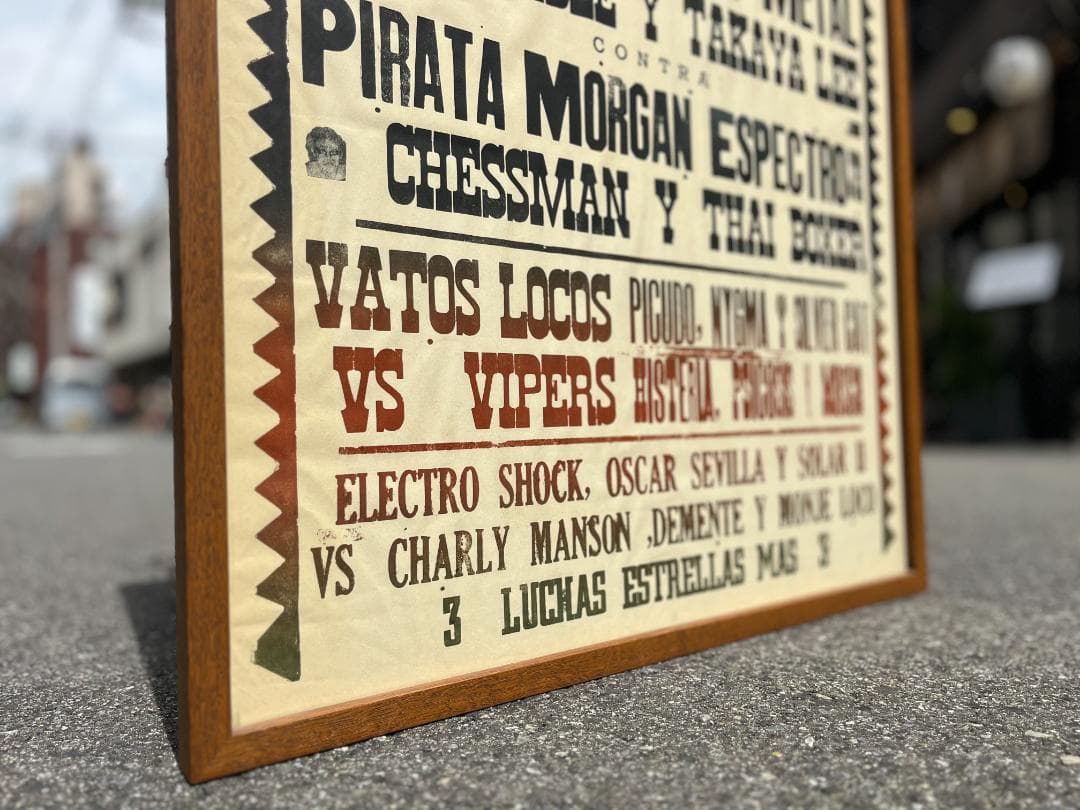 Y METAL
Y TAKAYA LEE
CONTRA
PIRATA MORGAN ESPECTRO JR
CHESSMAN Y THAI BOXER
VATOS LOCOS PICUDO, NYGMA Y SILVER CAT
VS VIPERS HISTERIA, PSICOSIS
ELECTRO SHOCK, OSCAR SEVILLA Y SOLAR II
VS CHARLY MANSON ,DEMENTE Y MONJE LOCO
3 LUCHAS ESTRELLAS MAS 3